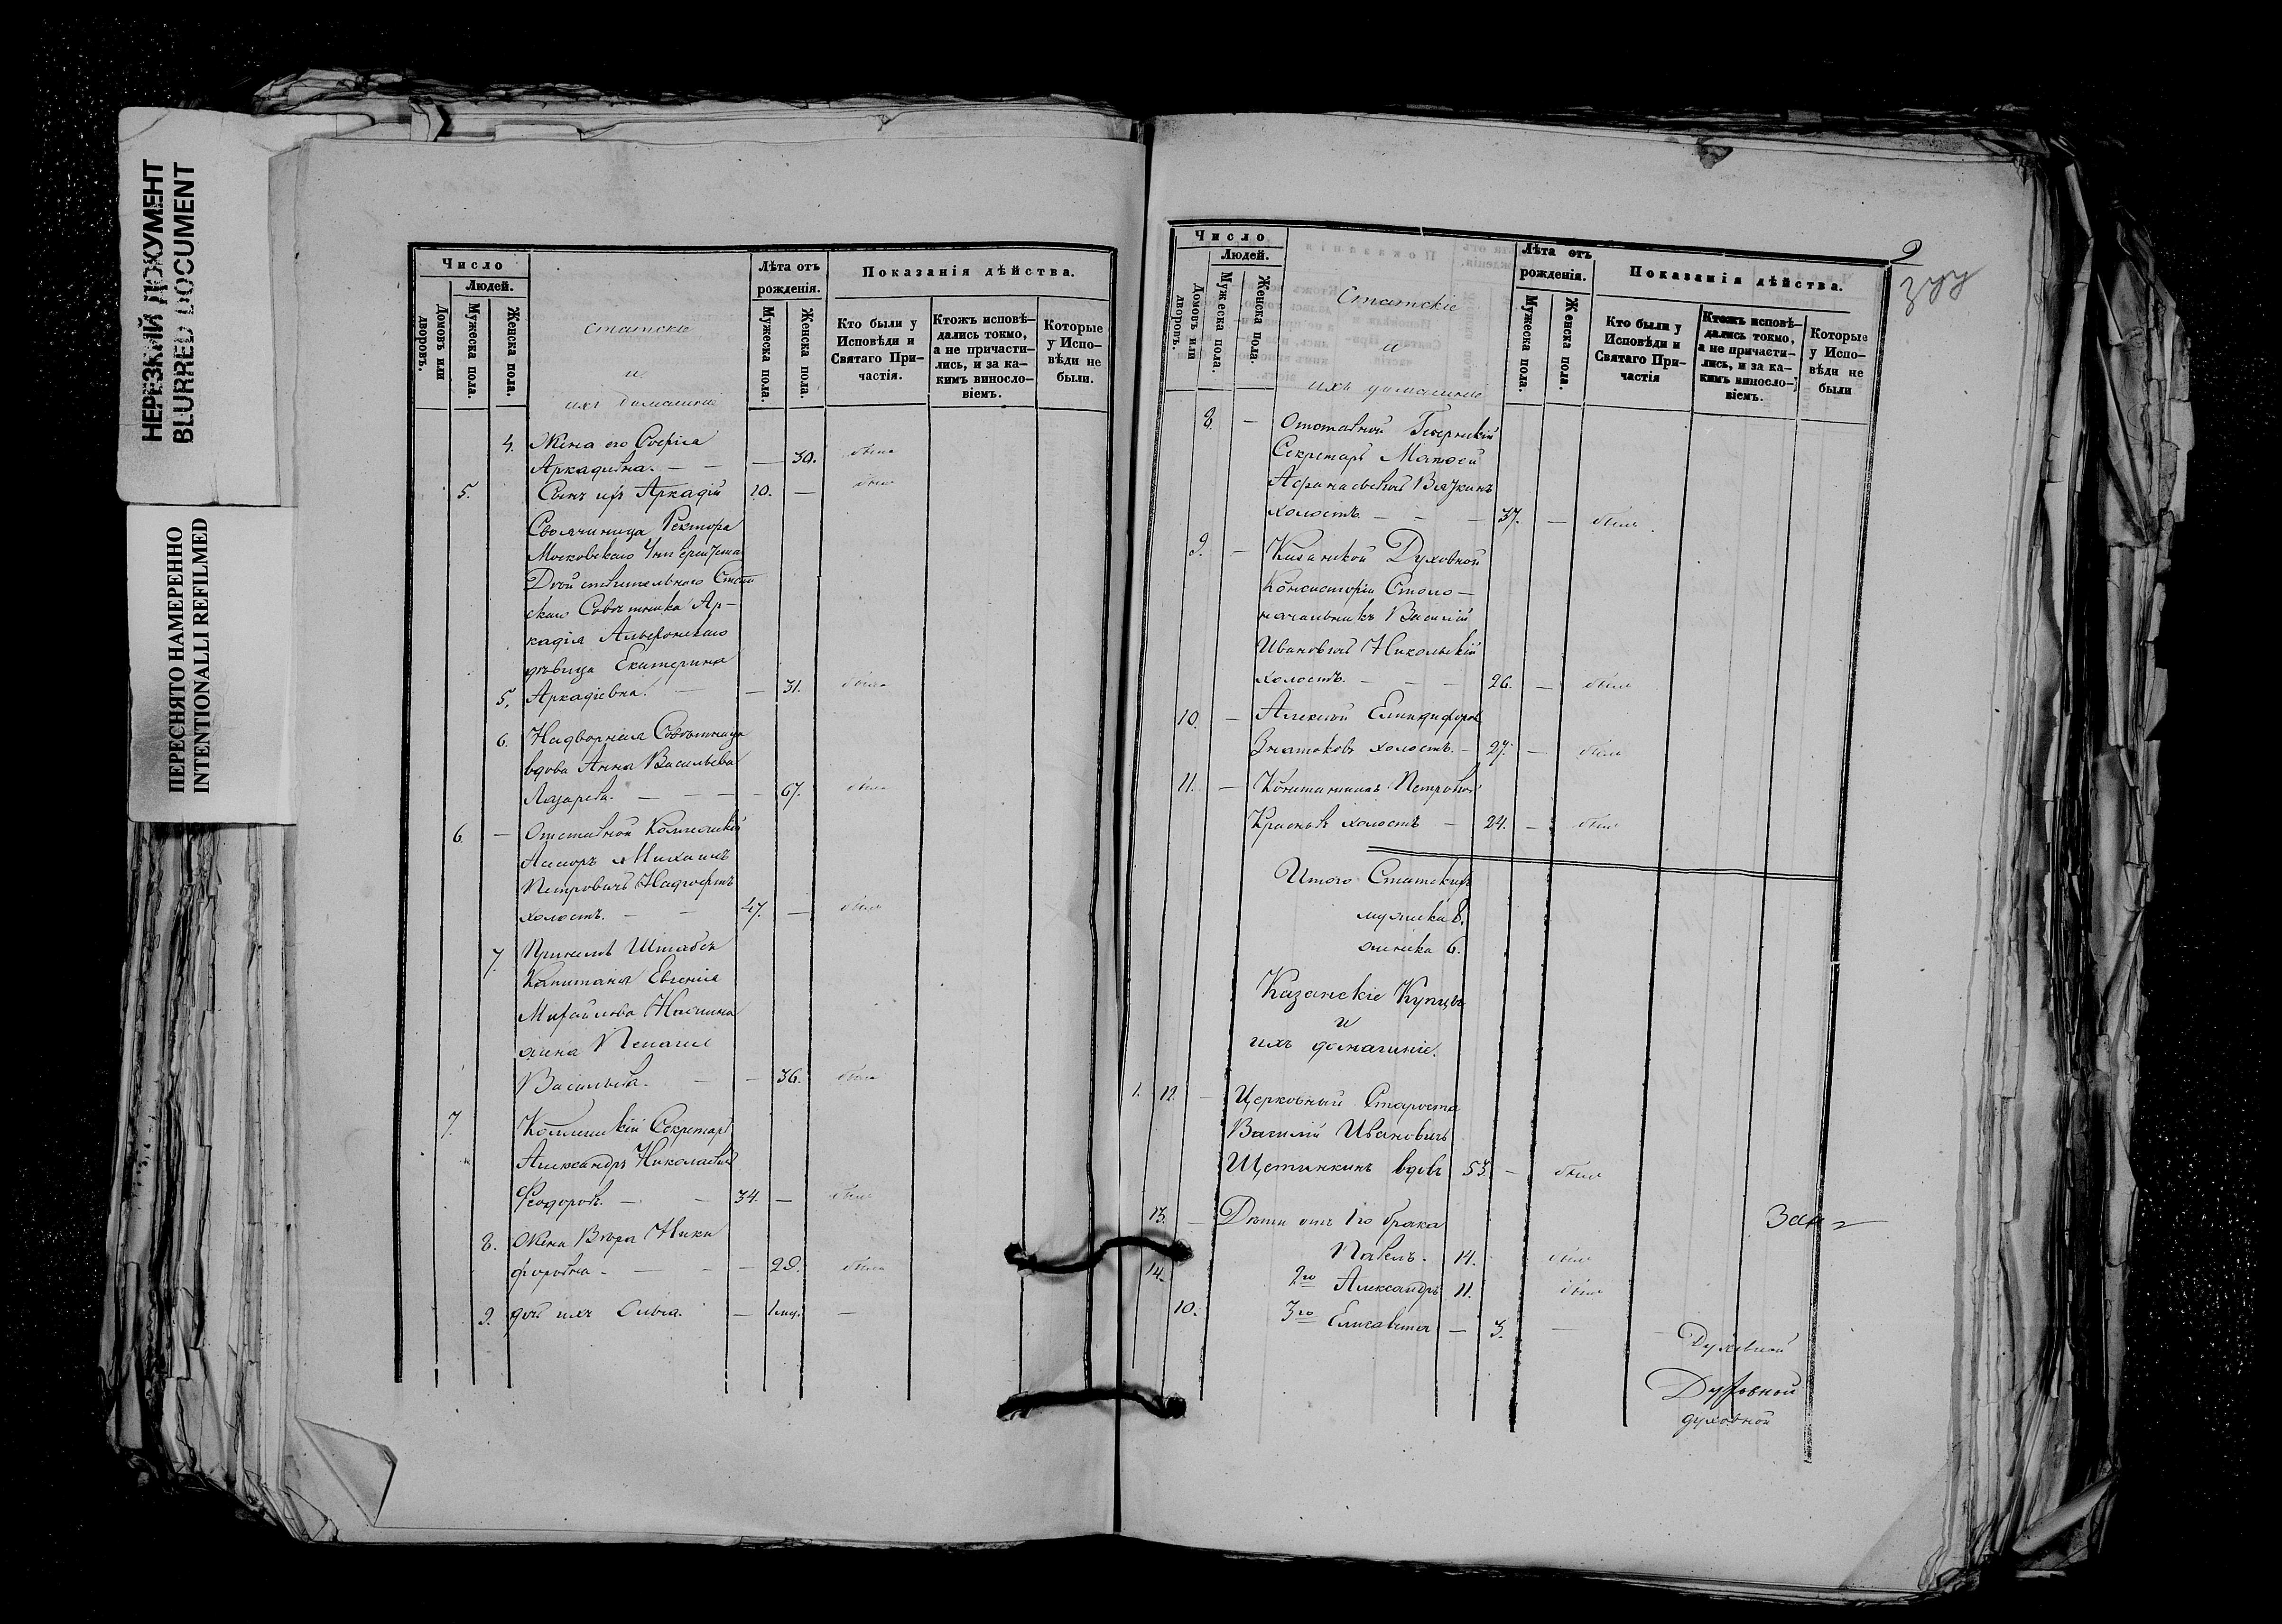 НЕРЕЗКИЙ ДОКУМЕНТ
BLURRED DOCUMENT
ПЕРЕСНЯТО НАМЕРЕННО
INTENTIONALLI REFILMED
Число
Людей.
Домовъ или дворовъ.
Мужеска пола.
Женска пола.
Статскіе
и
ихъ домашніе
Лѣта отъ рожденія.
Мужеска пола.
Женска пола.
Показанія дѣйства.
Кто были у Исповѣди и Святаго Причастія.
Ктожъ исповѣдались токмо, а не причастились, и за какимъ винословіемъ.
Которые у Исповѣди не были.
4. Жена его Софія
Аркадіевна. — — — 30. была
5. Сынъ ихъ Аркадій 10. — былъ
Ректора
Московскаго Университета
Дѣйствительнаго Стат
скаго Совѣтника Ар-
кадія Альфонскаго
дѣвица Екатерина
5. Аркадіевна. — — 31. была
6. Надворная Совѣтница
вдова Анна Васильева
Лазарева. — — — 67. была
6. — Отставной Коллежскій
Ассесоръ Михаилъ
Петровичъ
холостъ. — — 47. — былъ
7. Штабсъ
Капитана Евгенія
Михайлова
жена
Васильева. — — 36. была
7. Коллежскій Секретарь
Александръ Николаевичъ
Феодоровъ. — — 34. — былъ
8. Жена Вѣра Ники
форовна — — — 29. была
9. дочь ихъ Ольга. — 1 мц. —
9
Число
Людей.
Домовъ или дворовъ.
Мужеска пола.
Женска пола.
Статскіе
и
ихъ домашніе
Лѣта отъ рожденія.
Мужеска пола.
Женска пола.
Показанія дѣйства.
Кто были у Исповѣди и Святаго Причастія
Ктожъ исповѣдались токмо, а не причастились, и за какимъ винословіемъ.
Которые у Исповѣди не были
8. — Отставной Губернскій
Секретарь Матвей
Афанасьевичъ Вяткинъ
холостъ — — — 37. — былъ
9. — Казанской Духовной
Консисторіи Столо-
начальникъ Василій
Ивановичъ Никольскій
холостъ. — — — 26. — былъ
10. — Алексей Елпидифоровъ
Знатоковъ холостъ. — 27. — былъ
11. — Константинъ Петровичъ
холостъ — 24. — былъ
Итого Статскихъ
мужеска 8.
женска 6.
Казанскіе Купцы
и
ихъ домашніе.
1. 12. — Церковный Староста
Василій Ивановичъ
Щетинкинъ вдовъ 53. — былъ
13. — Дѣти отъ 1го брака
Павелъ. 14. былъ
14. 2го Александръ 11. былъ
10. 3го Елисавета — 3. —
Духовной
Духовной
духовной